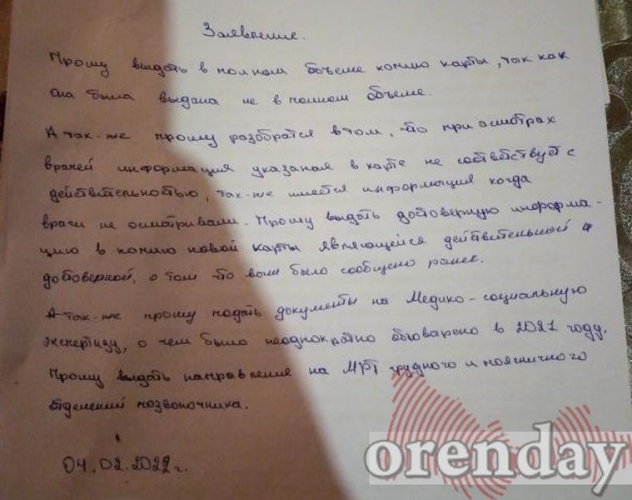 Заявление.
Прошу выдать в полном объеме копию карты, так как
она была выдана не в полном объеме.
А так-же прошу разобратся в том, что при осмотрах
врачей информация указаная в карте не соответствует с
действительностью, так-же имеется информация когда
врачи не осматривали. Прошу выдать достоверную информа-
цию в копию новой карты являющейся действительной и
достоверной, о том что вам было сообщено ранее.
А так-же прошу подать документы на Медико-социальную
экспертизу, о чем было неоднократно обговарено в 2021 году.
Прошу выдать направление на МРТ грудного и поясничного
отделений позвоночника.
04.02.2022г.
orenday